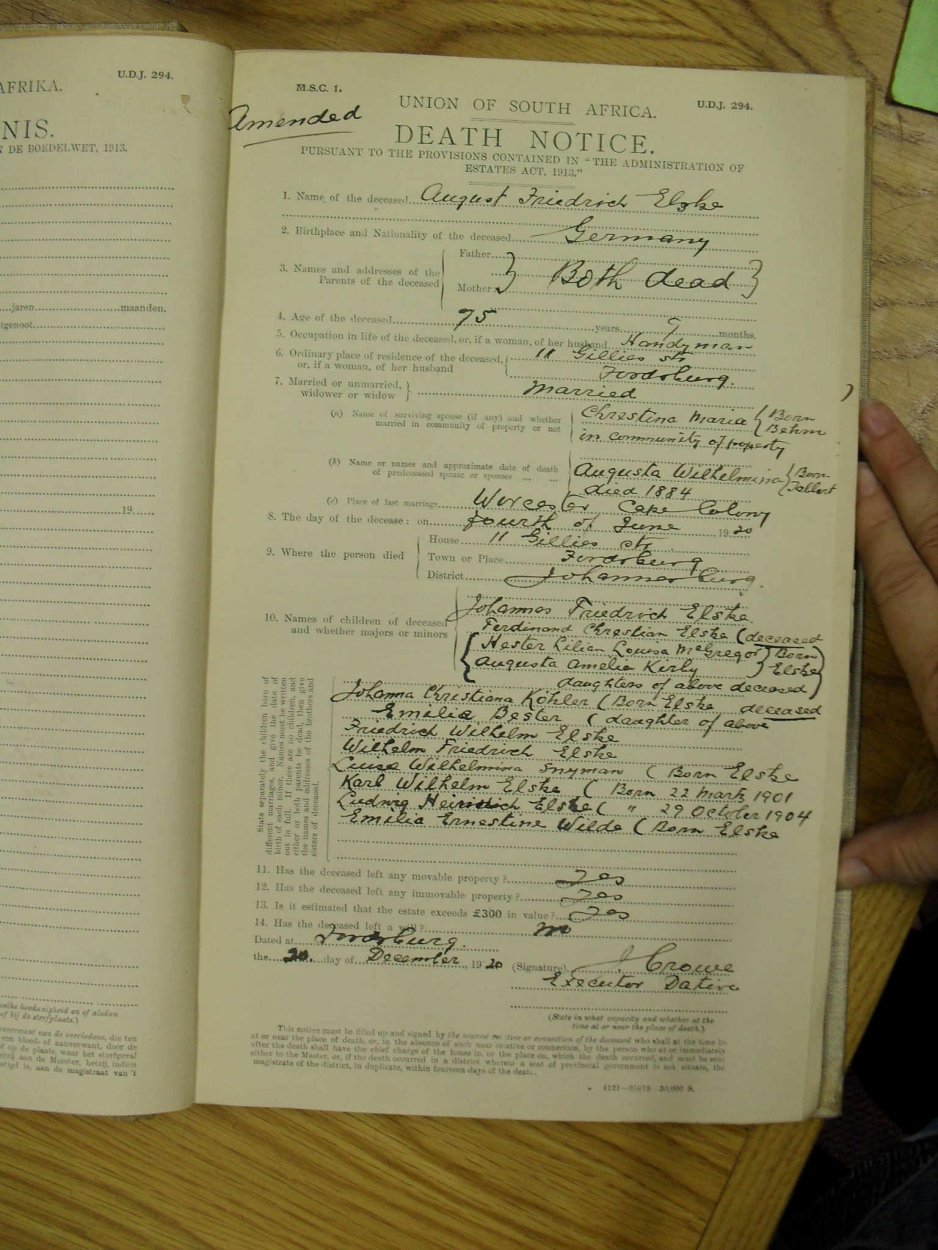 AFRIKA.
U.D.J. 294.
NIS.
N DE BOEDELWET, 1913.
jaren maanden.
tgenoot
19
M.S.C. 1.
UNION OF SOUTH AFRICA.
U.D.J. 294.
Amended
DEATH NOTICE.
PURSUANT TO THE PROVISIONS CONTAINED IN "THE ADMINISTRATION OF
ESTATES ACT, 1913."
1. Name of the deceased August Friedrich Elske
2. Birthplace and Nationality of the deceased Germany
3. Names and addresses of the Parents of the deceased
Father
Mother
Both dead
4. Age of the deceased 75 years 9 months.
5. Occupation in life of the deceased, or, if a woman, of her husband Handyman
6. Ordinary place of residence of the deceased, 11 Gillies str
or, if a woman, of her husband Fordsburg.
7. Married or unmarried, widower or widow Married
(a) Name of surviving spouse (if any) and whether Chrestina Maria (Born
married in community of property or not Behm
in community of property
(b) Name or names and approximate date of death Augusta Wilhelmina (Born
of predeceased spouse or spouses died 1884
(c) Place of last marriage Worcester Cape Colony
8. The day of the decease: on fourth of June 1920
9. Where the person died
House 11 Gillies str
Town or Place Fordsburg
District Johannesburg.
10. Names of children of deceased and whether majors or minors
Johannes Friedrich Elske
Ferdinand Chrestian Elske (deceased
Hester Lilian Louisa McGregor Born
Augusta Amelia Kirby Elske
daughters of above deceased)
State separately the children born of
different marriages, and give the date of
birth of each minor. Names must be written
out in full. If there are no children, and
either or both parents be dead, then give
the names and addresses of the brothers and
sisters of deceased.
Johanna Christiana Köhler (Born Elske deceased
Emilia Bester (daughter of above
Friedrich Wilhelm Elske
Wilhelm Friedrich Elske
Luise Wilhelmina Snyman (Born Elske
Karl Wilhelm Elske (Born 22 March 1901
Ludwig Heinrich Elske ( " 29 October 1904
Emilia Ernestine Wilde (Born Elske
11. Has the deceased left any movable property? Yes
12. Has the deceased left any immovable property? Yes
13. Is it estimated that the estate exceeds £300 in value? Yes
14. Has the deceased left a will? No
Dated at Fordsburg.
the 20. day of December, 1920
(Signature) J Crowe
Executor Dative
(State in what capacity and whether at the
time at or near the place of death.)
This notice must be filled up and signed by the nearest relative or connection of the deceased who shall at the time be
at or near the place of death, or, in the absence of such near relative or connection, by the person who at or immediately
after the death shall have the chief charge of the house in, or the place on, which the death occurred, and must be sent
either to the Master, or, if the death occurred in a district wherein a seat of provincial government is not situate, the
magistrate of the district, in duplicate, within fourteen days of the death.